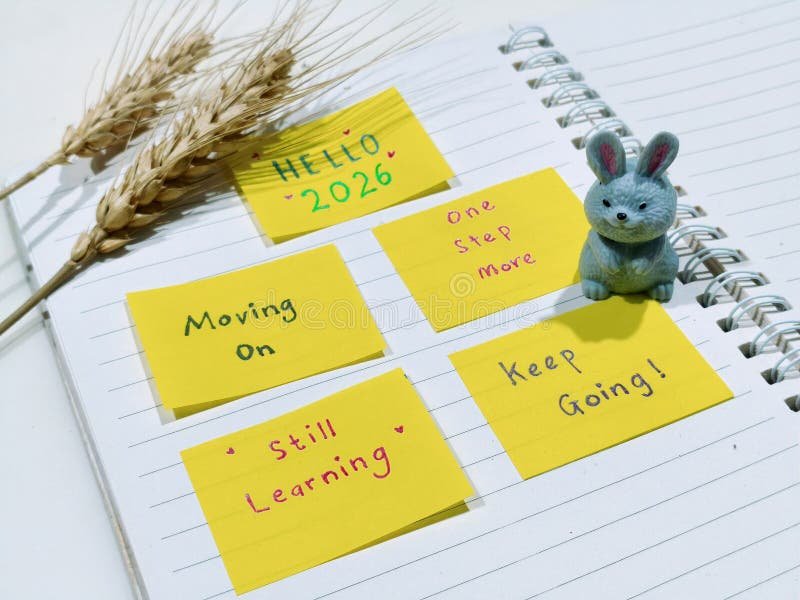 HELLO
2026
One
Step
More
Moving
On
Keep
Going!
Still
Learning
dreamstime